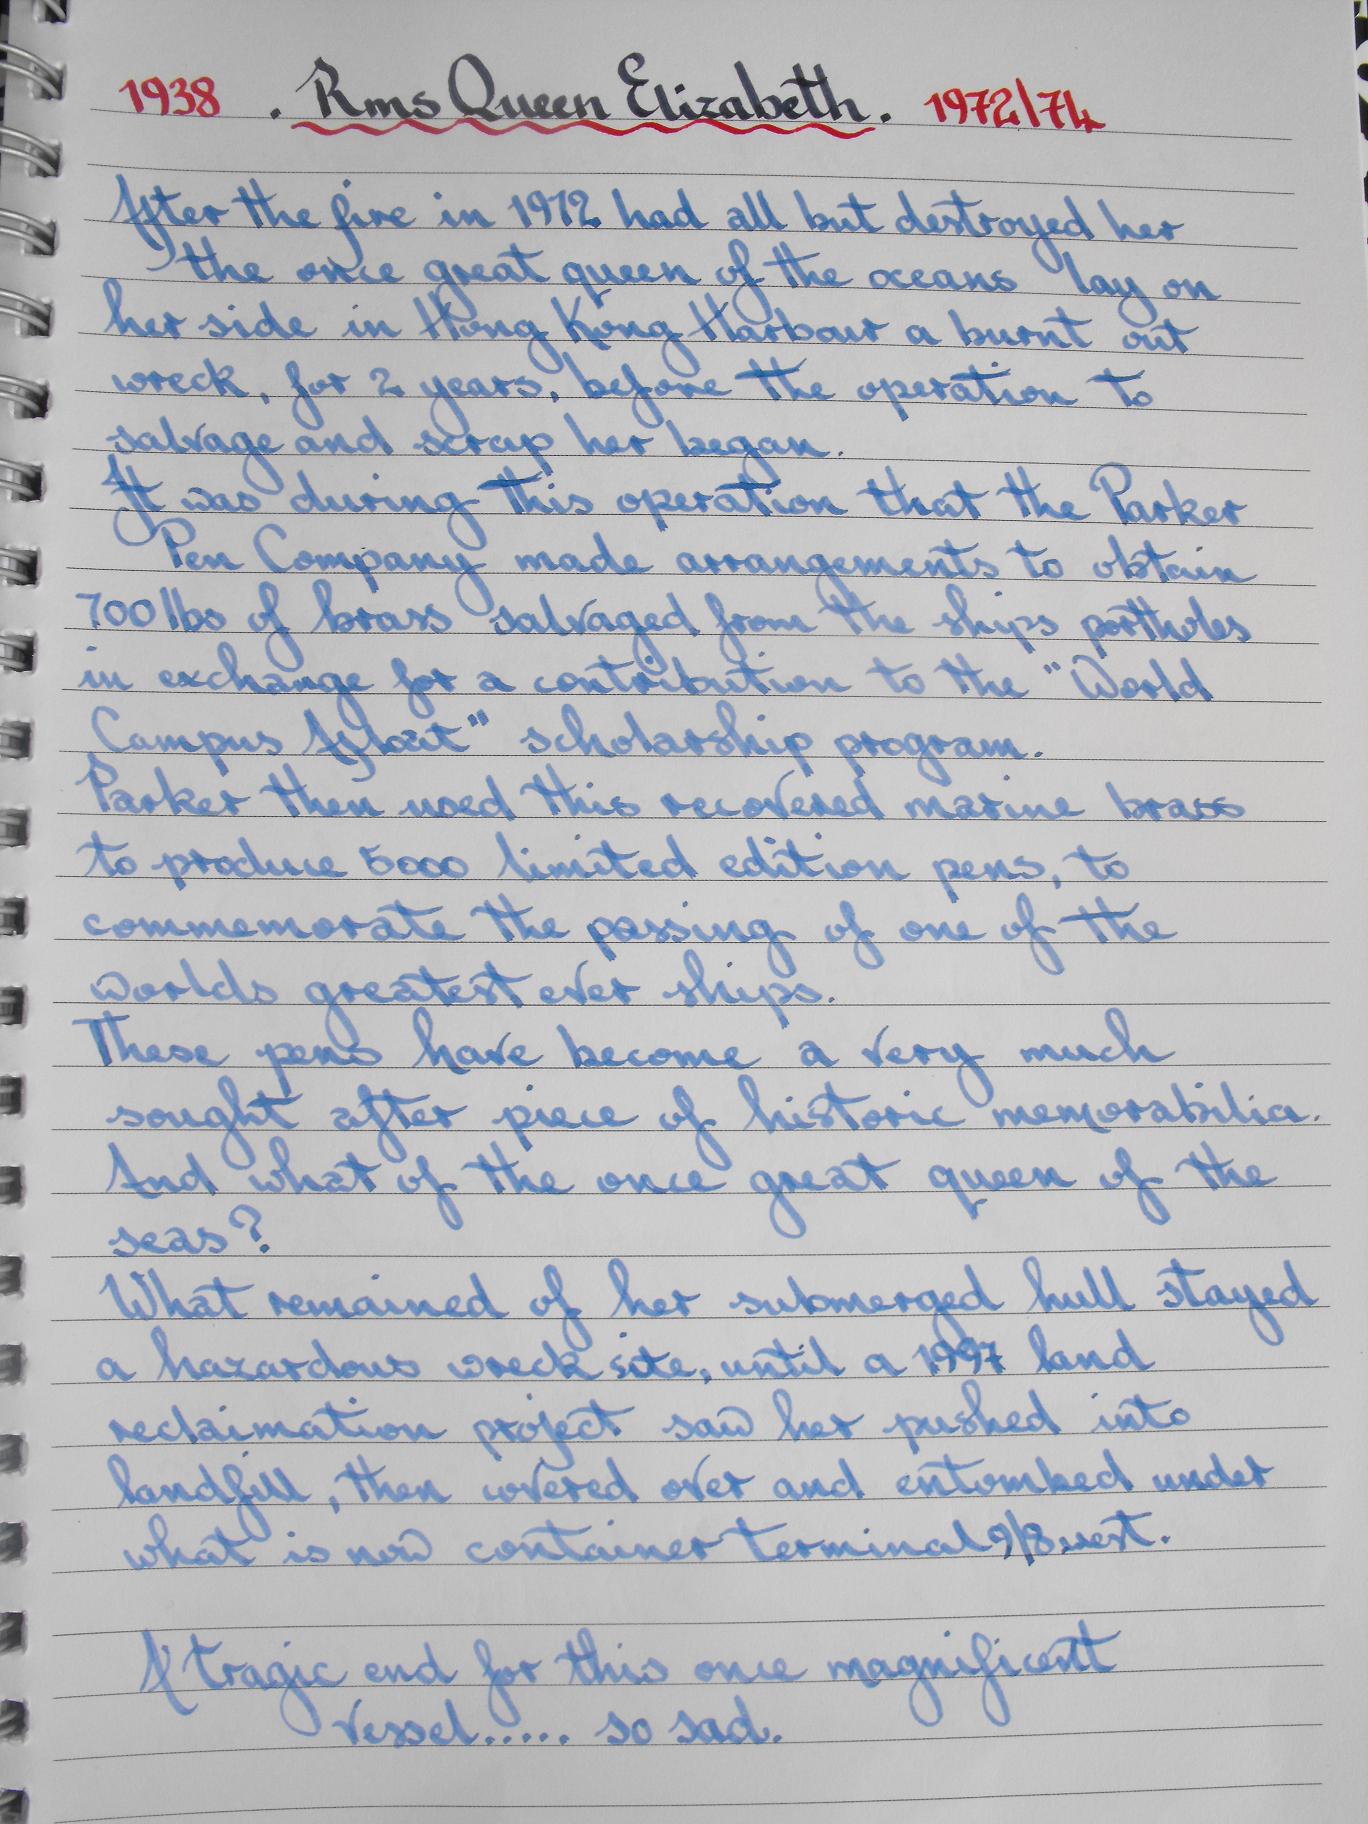 1938 . Rms Queen Elizabeth. 1972/74
After the fire in 1972 had all but destroyed her
the once great queen of the oceans lay on
her side in Hong Kong Harbour a burnt out
wreck, for 2 years, before the operation to
salvage and scrap her began.
It was during this operation that the Parker
Pen Company made arrangements to obtain
700 lbs of brass salvaged from the ships portholes
in exchange for a contribution to the "World
Campus Afloat" scholarship program.
Parker then used this recovered marine brass
to produce 5000 limited edition pens, to
commemorate the passing of one of the
worlds greatest ever ships.
These pens have become a very much
sought after piece of historic memorabilia.
And what of the once great queen of the
seas?
What remained of her submerged hull stayed
a hazardous wreck site, until a 1997 land
reclaimation project saw her pushed into
landfill, then covered over and entombed under
what is now container terminal 9/8 west.
A tragic end for this once magnificent
vessel..... so sad.